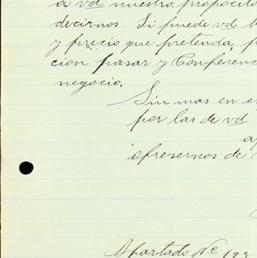 a vd nuestro proposito
decirnos. Si puede vd
y precio que pretenda,
cion pasar y Conferenc
negocio.
Sin mas en e
por las de vd
a
ofresernos de
Apartado No 193